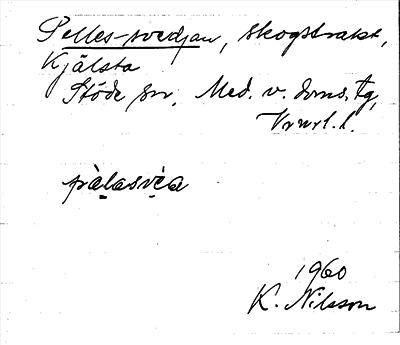 Pelles-svedjan, skogstrakt,
Kjälsta
Stöde sn, Med. v. doms. tg,
Vnrl. l.
pàlasvèa
1960
K. Nilsson